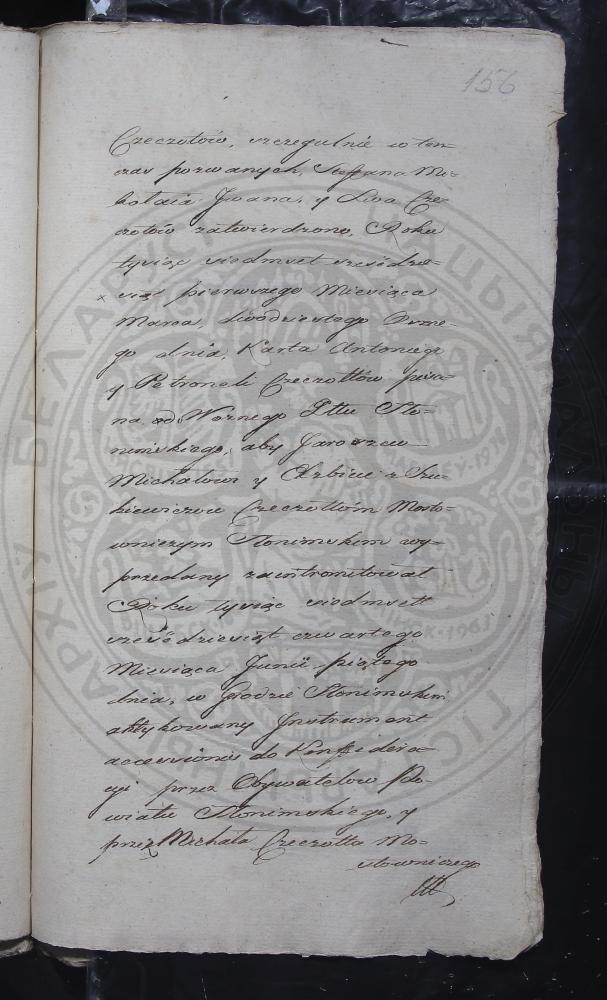 156
Czeczotów, szczegulnie w ten
czas pozwanych, Steffana Mi-
kołaia Jwana, y Lwa Cze-
czotów zatwierdzono, Roku
tysiąc siedmset sześćdzie-
siąt pierwszego Miesiąca
Marca, dwódziestego Osme-
go dnia, Karta Antoniego
y Petroneli Czeczottów pisa-
na od Woźnego Pttu Sło-
nimskiego, aby Jaroszew
Michałowi y z
Czeczottóm Mosto-
wniczym Słonimskim wy-
przedany zaintromitował
Roku tysiąc siedmsett
sześćdziesiąt czwartego
Miesiąca Junii piątego
dnia, w Grodzie Słonimskim
aktykowany Jnstrument
accessionis do Konffidera-
cyi przez Obywatelow Po-
wiatu Słonimskiego, y
przez Michała Czeczotta Mo-
stowniczego